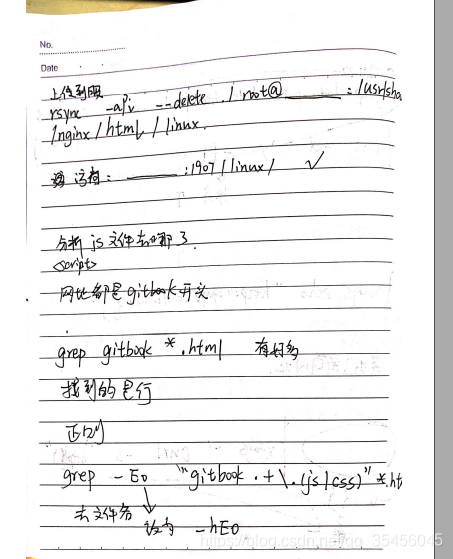 No.
Date
上传到服
rsync -apv --delete ./ root@______:/usr/sha
/nginx/html/linux.
访问:______:1907/linux/ ✓
分析 js 文件去哪了.
<script>
网址都是gitbook开头
grep gitbook *.html 有好多
找到的是行
正则
grep -Eo "gitbook.+\.(js|css)" *.ht
去文件名 改为 -hEo
https://blog.csdn.net/qq_35456045